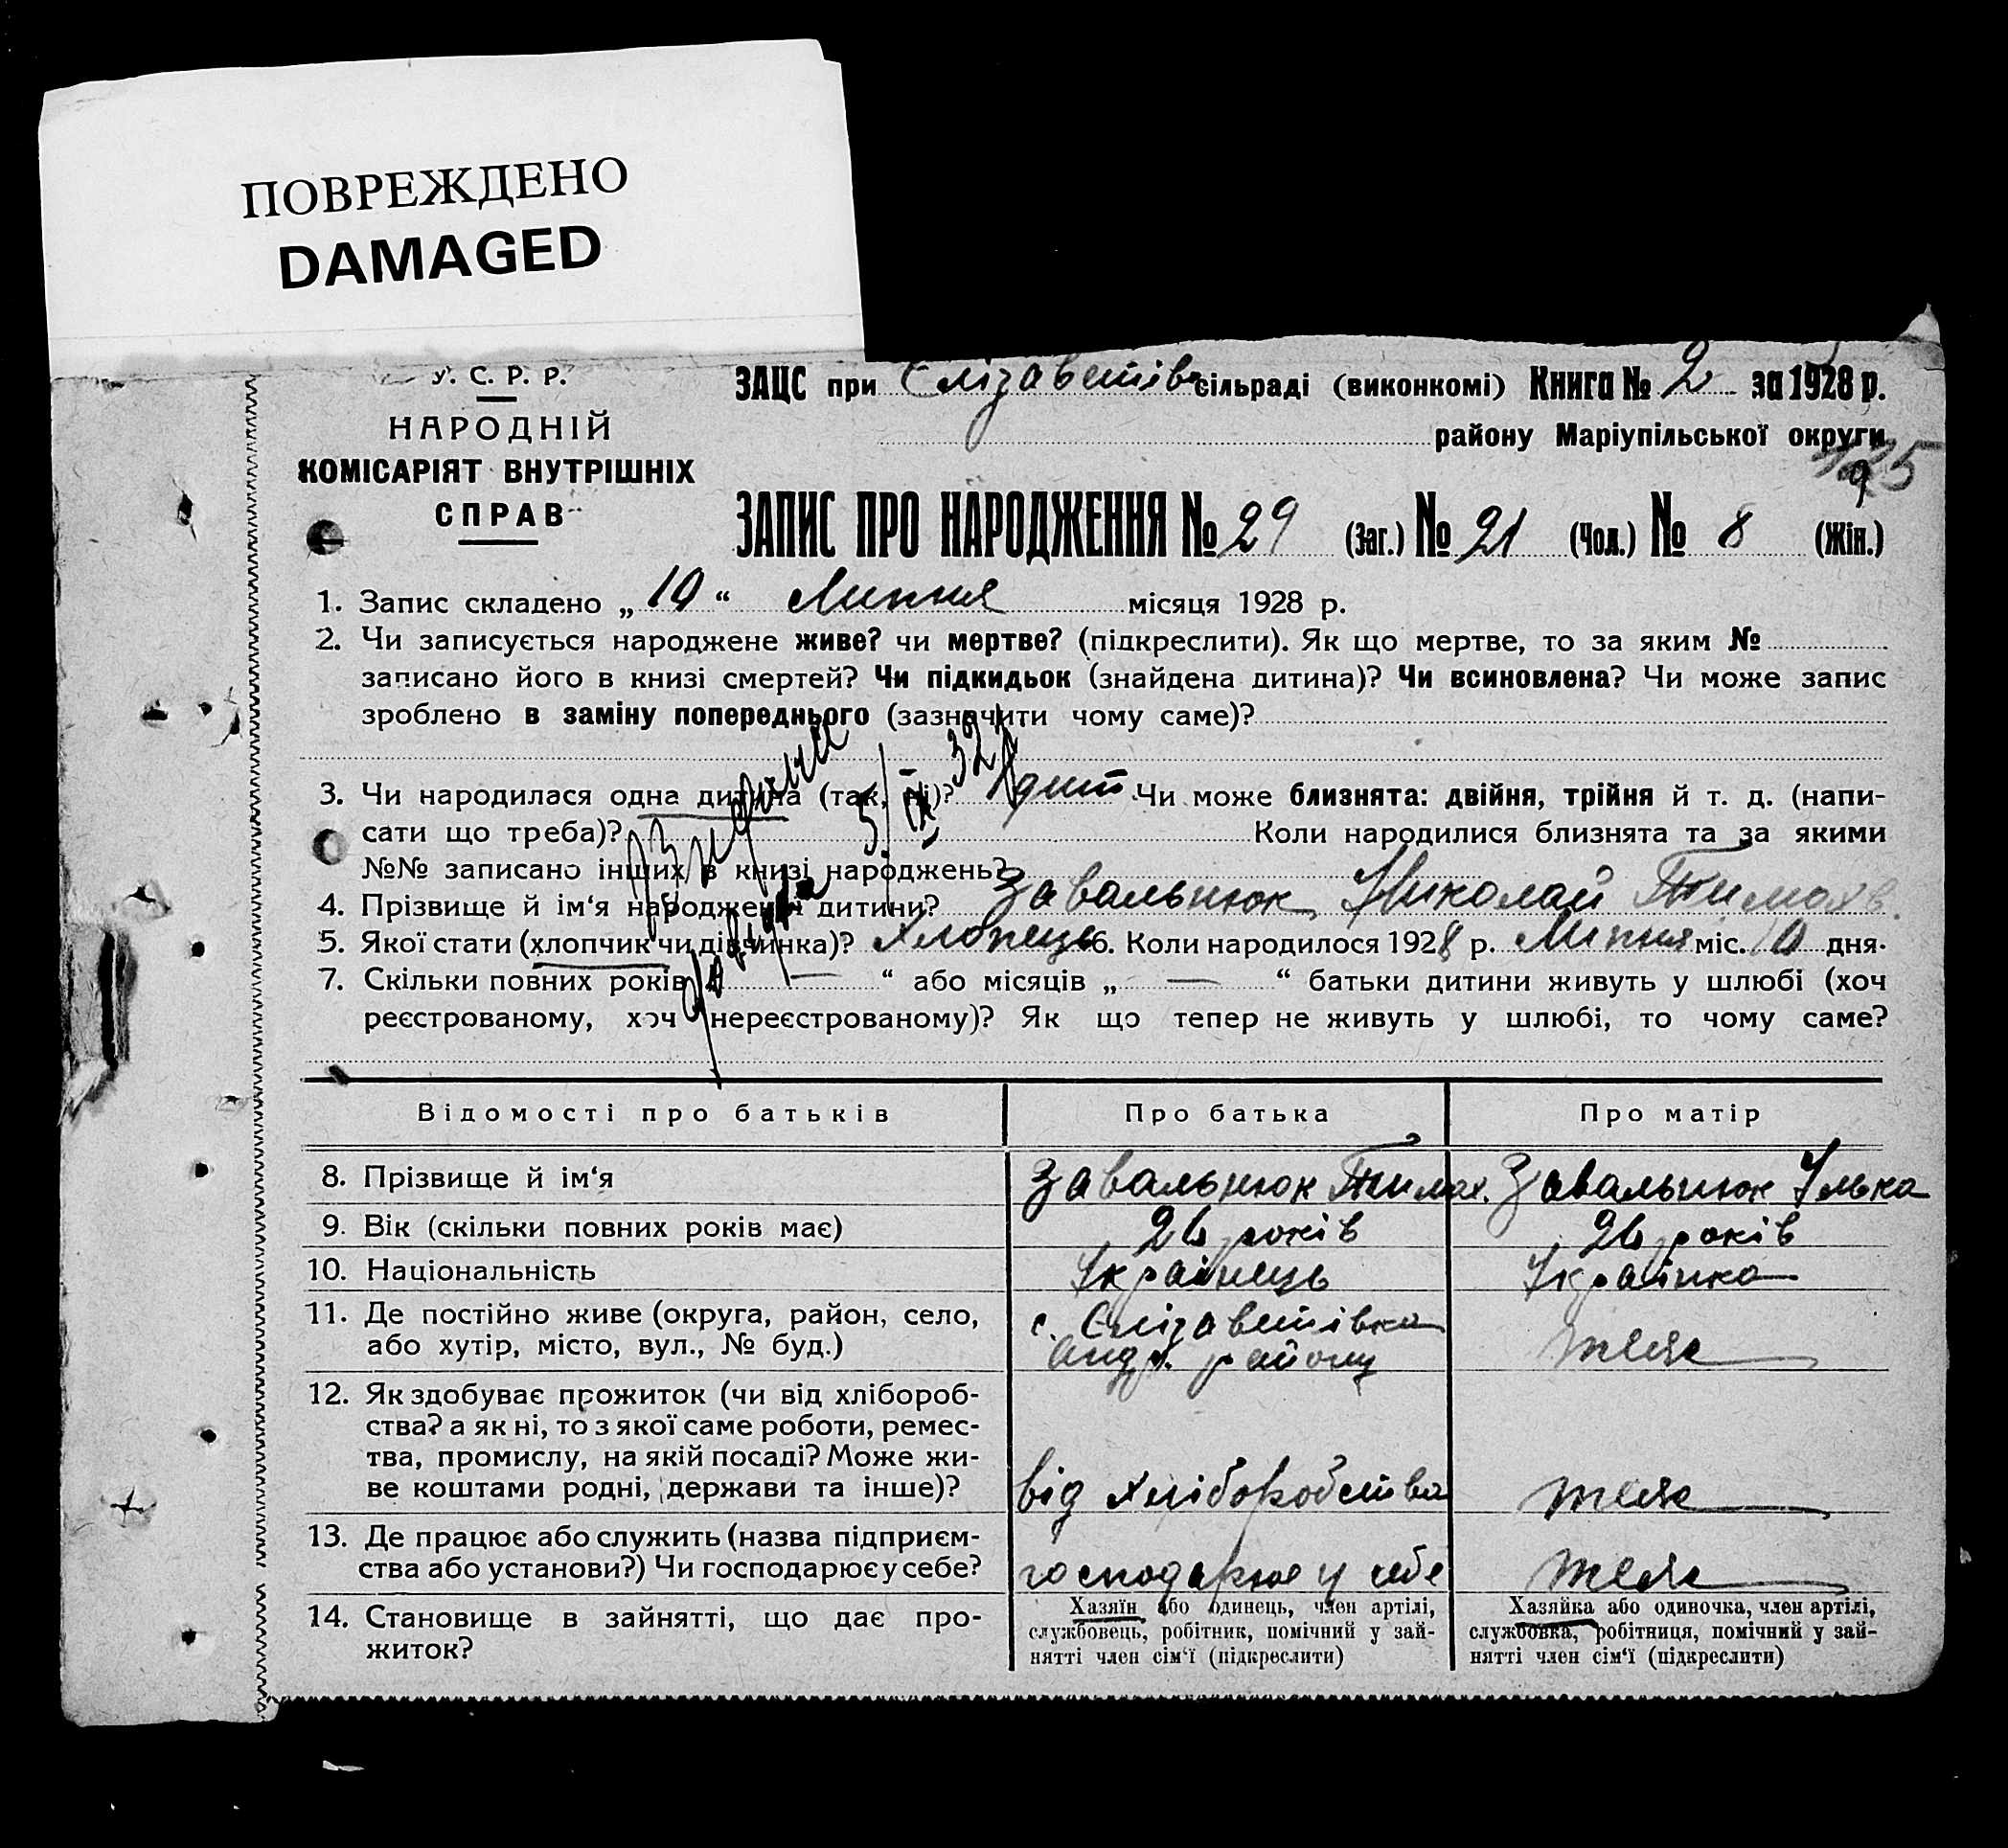 ПОВРЕЖДЕНО
DAMAGED
У. С. Р. Р.
НАРОДНІЙ
КОМІСАРІЯТ ВНУТРІШНІХ
СПРАВ
ЗАЦС при Єлізаветівс сільраді (виконкомі) Книга № 2 за 1928 р.
району Маріупільської округи
ЗАПИС ПРО НАРОДЖЕННЯ № 29 (Заг.) № 21 (Чол.) № 8 (Жін.)
1. Запис складено „ 10 “ Липня місяця 1928 р.
2. Чи записується народжене живе? чи мертве? (підкреслити). Як що мертве, то за яким №
записано його в книзі смертей? Чи підкидьок (знайдена дитина)? Чи всиновлена? Чи може запис
зроблено в заміну попереднього (зазначити чому саме)?
3. Чи народилася одна дитина (так, ні)? Чи може близнята: двійня, трійня й т. д. (напи-
сати що треба)? Коли народилися близнята та за якими
№№ записано інших в книзі народжень?
4. Прізвище й ім‘я народженої дитини? Завальнюк Николай Тимохв.
5. Якої стати (хлопчик чи дівчинка)? Хлопець 6. Коли народилося 1928 р. Липня міс. 10 дня.
7. Скільки повних років „ — “ або місяців „ — “ батьки дитини живуть у шлюбі (хоч
реєстрованому, хоч нереєстрованому)? Як що тепер не живуть у шлюбі, то чому саме?
Відомості про батьків Про батька Про матір
8. Прізвище й ім‘я Завальнюк Тимох. Завальнюк Улька
9. Вік (скільки повних років має) 26 років 26 років
10. Національність Українець Українка
11. Де постійно живе (округа, район, село, с. Єлізаветівка
або хутір, місто, вул., № буд.) Андр. району теж
12. Як здобуває прожиток (чи від хліборoб-
ства? а як ні, то з якої саме роботи, ремес-
тва, промислу, на якій посаді? Може жи-
ве коштами родні, держави та інше)? від хліборобства теж
13. Де працює або служить (назва підприєм-
ства або установи?) Чи господарює у себе? господарює у себе теж
14. Становище в зайнятті, що дає про-
житок?
Хазяїн або одинець, член артілі,
службовець, робітник, помічний у зай-
нятті член сім‘ї (підкреслити)
Хазяйка або одиночка, член артілі,
службовка, робітниця, помічний у зай-
нятті член сім‘ї (підкреслити)